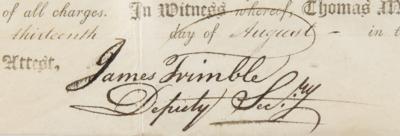 of all charges. In Witness whereof, Thomas M
thirteenth day of August in t
Attest,
James Trimble
Deputy Sec.ry